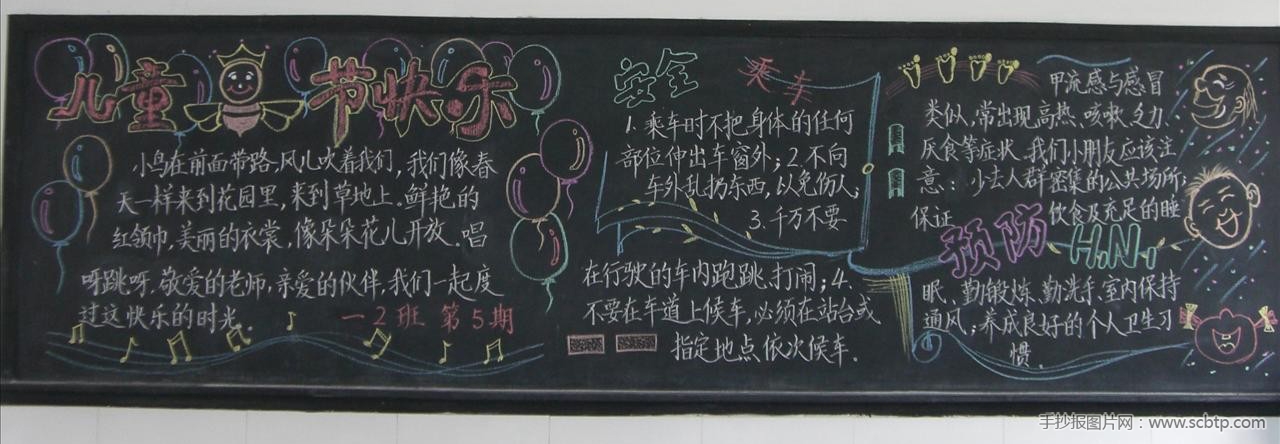 儿童节快乐
小鸟在前面带路,风儿吹着我们,我们像春
天一样来到花园里,来到草地上.鲜艳的
红领巾,美丽的衣裳,像朵朵花儿开放.唱
呀跳呀.敬爱的老师,亲爱的伙伴,我们一起度
过这快乐的时光.
一2班 第5期
安全
乘车
1.乘车时不把身体的任何
部位伸出车窗外;2.不向
车外乱扔东西,以免伤人;
3.千万不要
在行驶的车内跑跳、打闹;4.
不要在车道上候车,必须在站台或
指定地点依次候车.
甲流感与感冒
类似,常出现高热、咳嗽、乏力、
厌食等症状.我们小朋友应该注
意:少去人群密集的公共场所;
保证 饮食及充足的睡
预防H1N1
眠、勤锻炼、勤洗手、室内保持
通风;养成良好的个人卫生习
惯.
手抄报图片网:www.scbtp.com